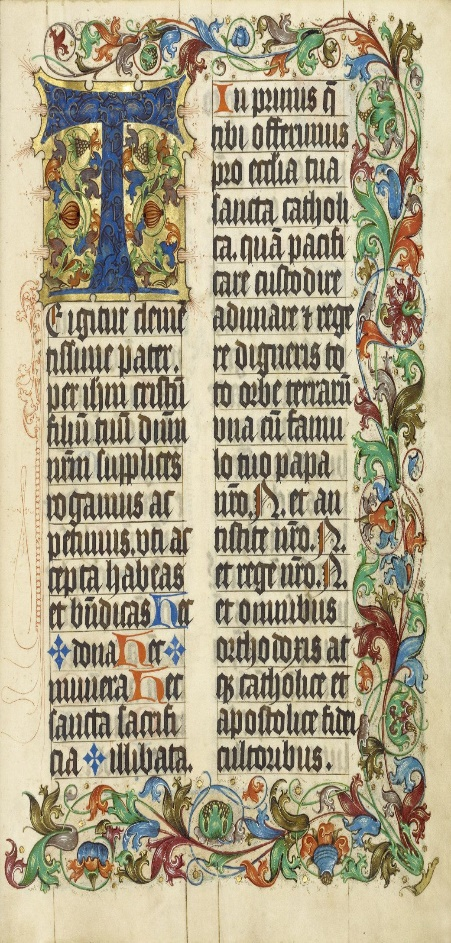 T
E igitur cleme
tissime pater.
per ihm cristū
filiū tuū dnm̄
nrm̄ supplices
rogamus ac
petimus. vti ac
cepta habeas
et bn̄dicas Hec
dona Hec
munera Hec
sancta sacrifi
cia illibata.
In primis q̄
tibi offerimus
pro ecclīa tua
sancta catholi
ca. quā pacifi
care custodire
adunare ⁊ rege
re digneris to
to orbe terrarū
vna cū famu
lo tuo papa
nr̄o. N. et an
tistite nr̄o. N.
et rege nr̄o. N.
et omnibus
orthodoxis at
qꝫ catholice et
apostolice fidei
cultoribus.